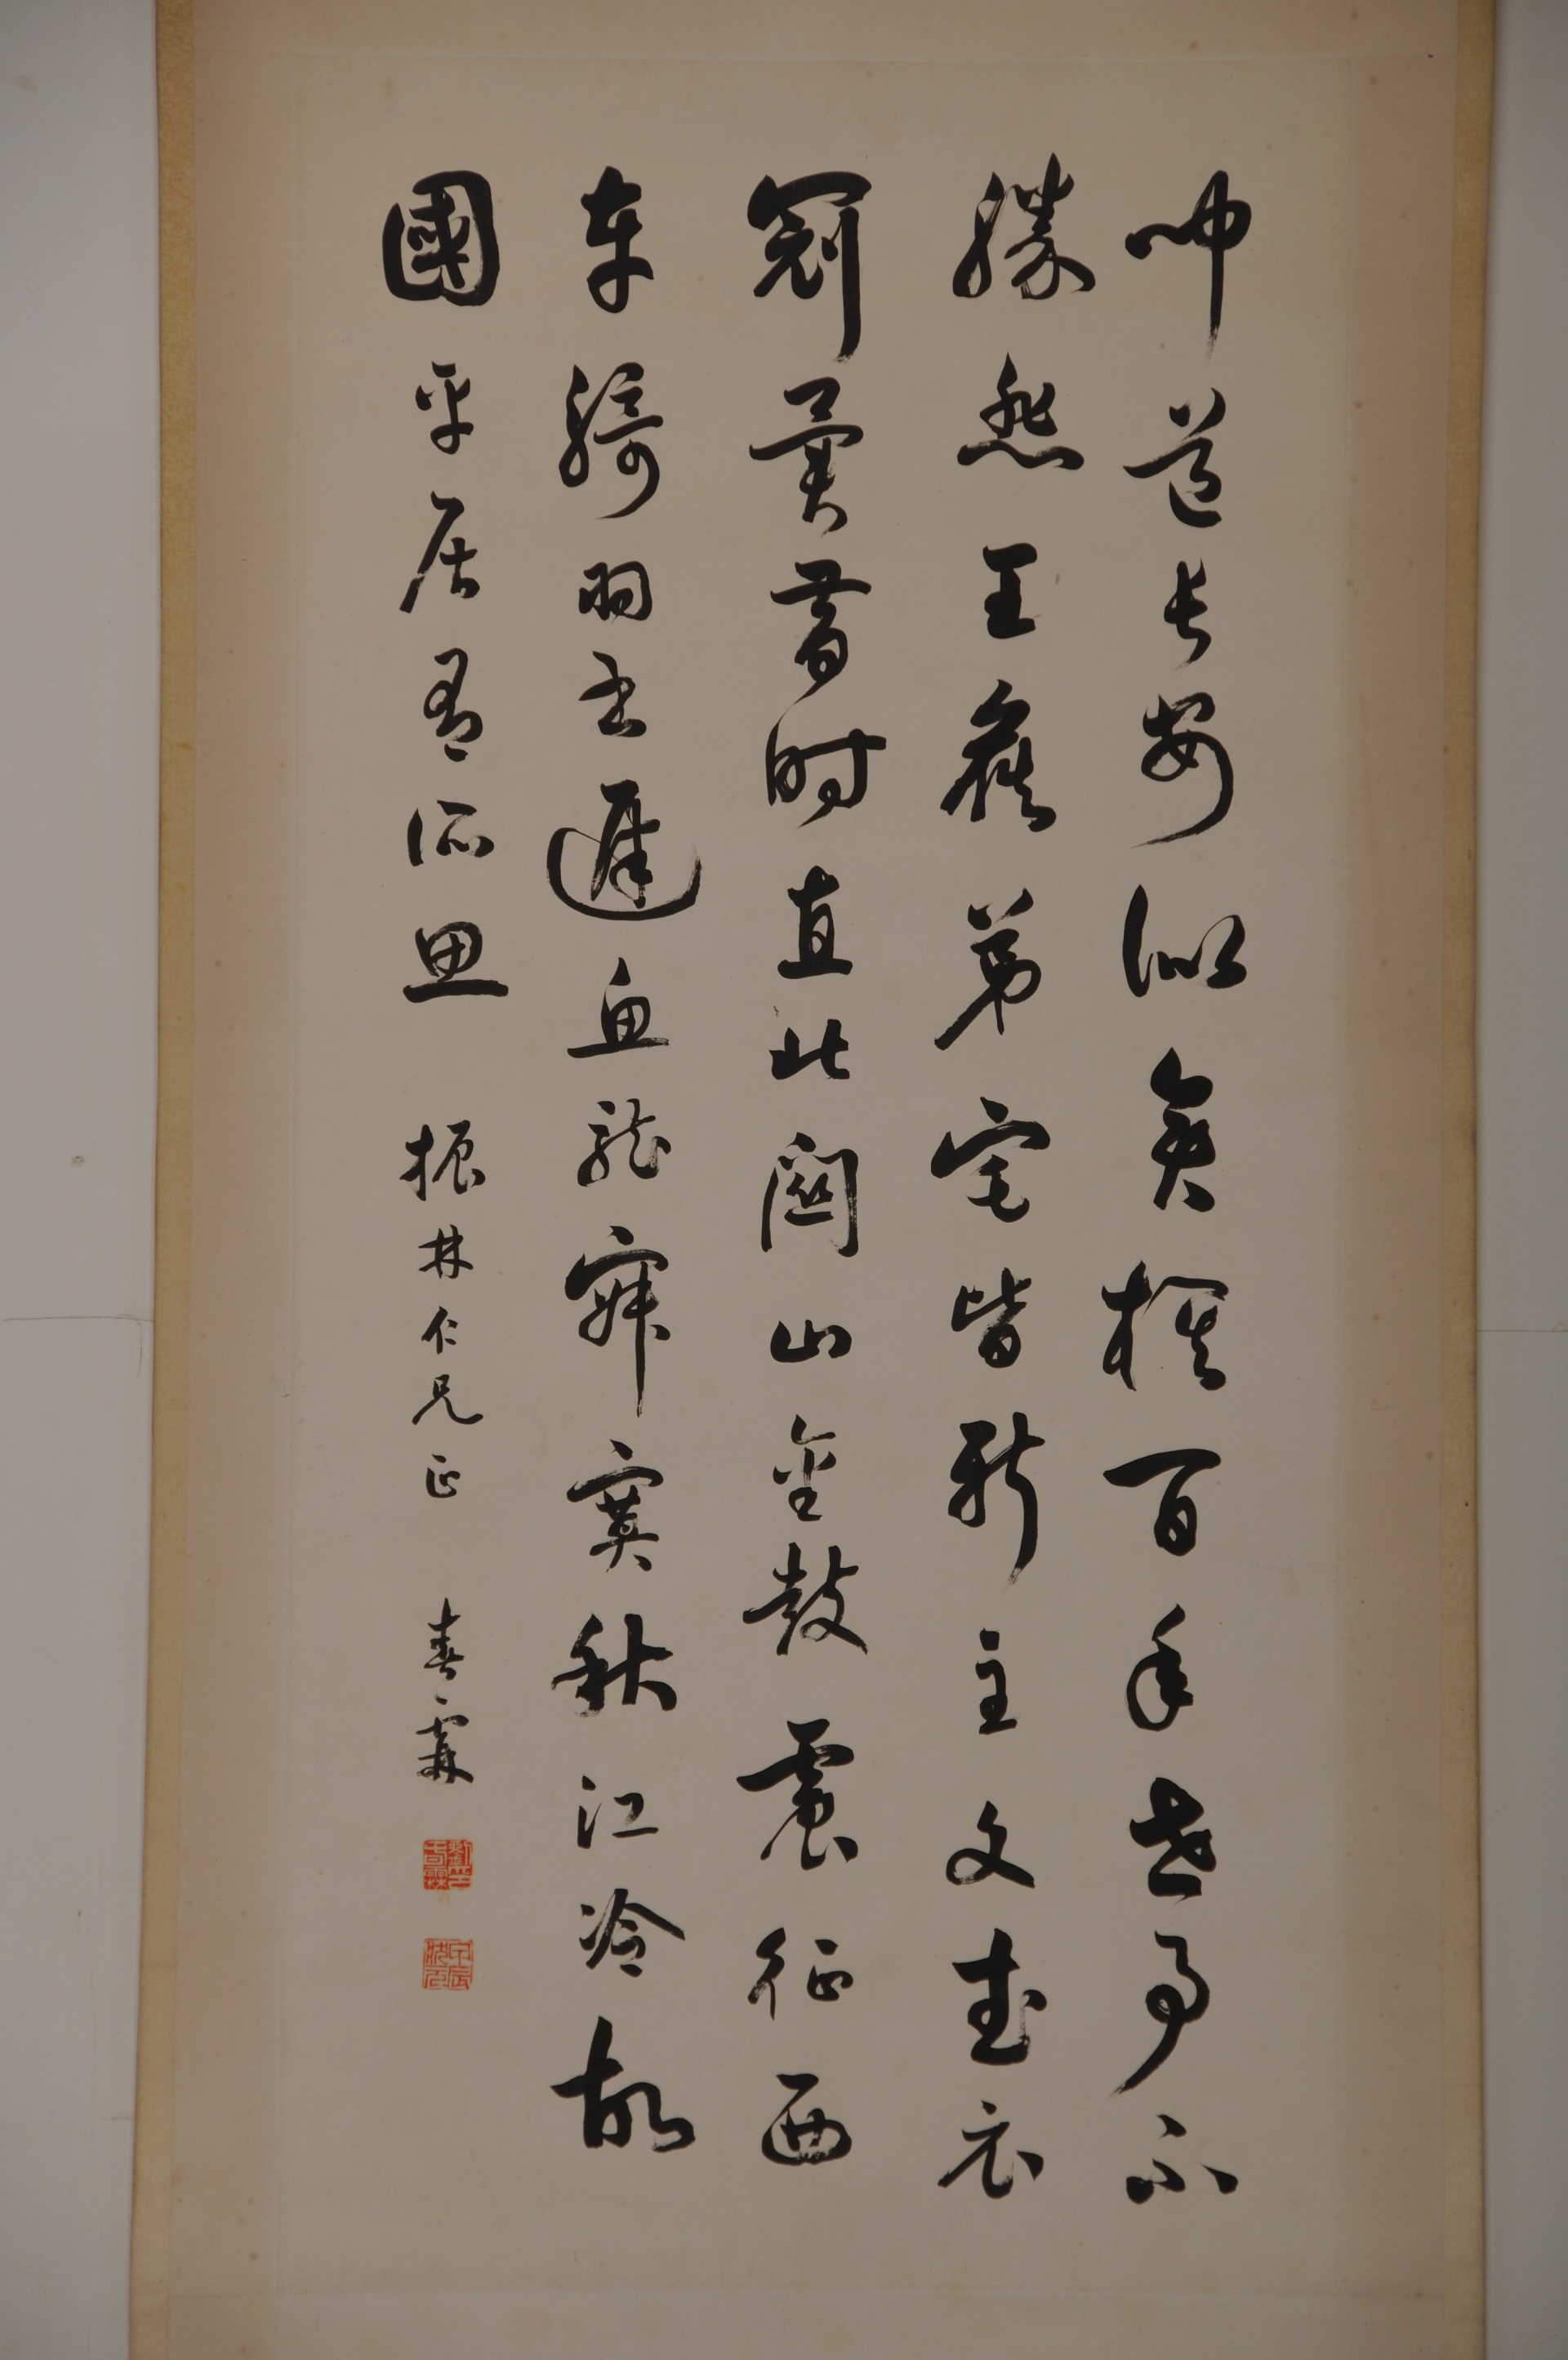 聞道長安似奕棋百年世事不
勝悲王侯第宅皆新主文武衣
冠異昔時直北關山金鼓震征西
車騎羽書遲魚龍寂寞秋江冷故
國平居有所思 振林仁兄正 春霖
劉春霖印
甲辰狀元